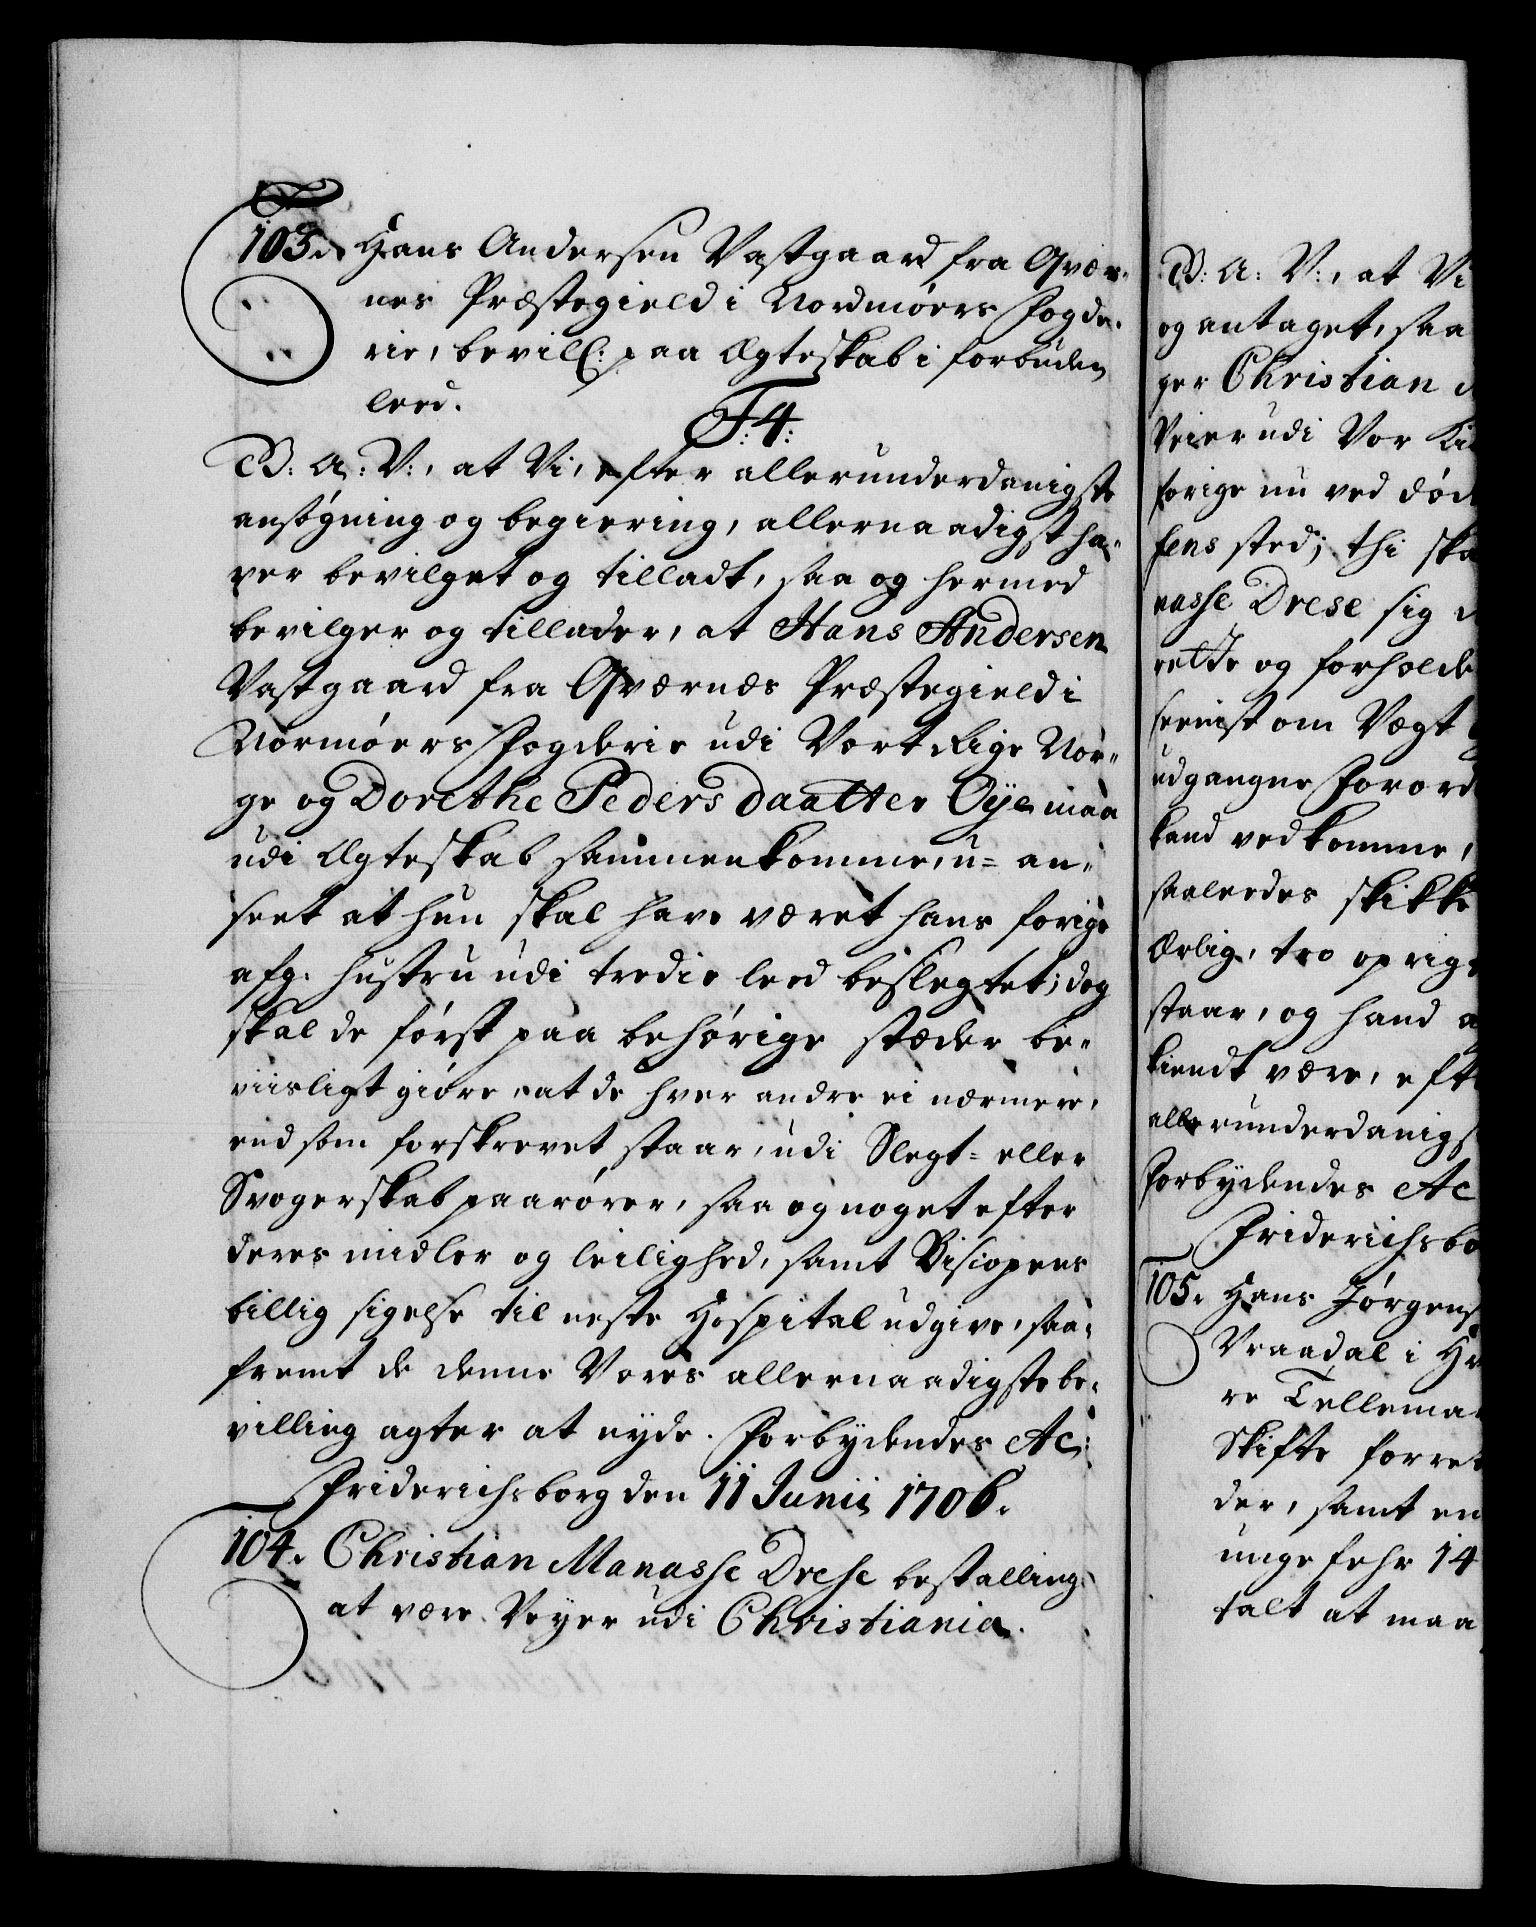 103. Hans Andersen Vastgaard fra Qvær-
nes Præstegield i Nordmøers fogde-
rie, bevilg: paa Ægteskab i forbuden
leed.
F: 4:
B: A: V:, at Vi, efter allerunderdanigste
ansøgning og begiering, allernaadigst ha-
ver bevilget og tilladt, saa og hermed
bevilger og tillader, at Hans Andersen
Vastgaard fra Qværnæs Præstegield i
Normøers fogderie udi Vort Rige Nor-
ge og Dorethe Peders daatter Øye maa
udi Ægteskab sammenkomme, u= an-
seet at hun skal have været hans forige
afg. hustru udi tredie leed beslegtet; dog
skal de først paa behørige stæder be-
viisligt giøre, at de hver andre ei nærmere,
end som forskrevet staar, udi Slegt= eller
Svogerskab paarører, saa og noget efter
deres midler og leilighed, samt Bisiopens
billig sigelse til neste Hospital udgive, saa-
fremt de denne Vores allernaadigste be-
villing agter at nyde. Forbydendes &c:
Friderichsborg den 11 Junii 1706.
104. Christian Manasse Drese bestalling
at være Veyer udi Christiania.
B: A: V:, at Vi
og antaget, saa
ger Christian
Veier udi Vor
forige nu ved død
sens sted; thi ska
nasse Drese sig
rette og forholde
seenist om Vægt
udgangne Forord
kand vedkomme,
saaledes skikke
Ærlig, tro oprig
staar, og hand a
kiendt være, eft
allerunderdanigs
forbydendes &c
Friderichsbo
105. Hans Jørgens
Vraadal i
re Tellema
Skifte forre
der, samt en
ungefehr 14
talt at maa